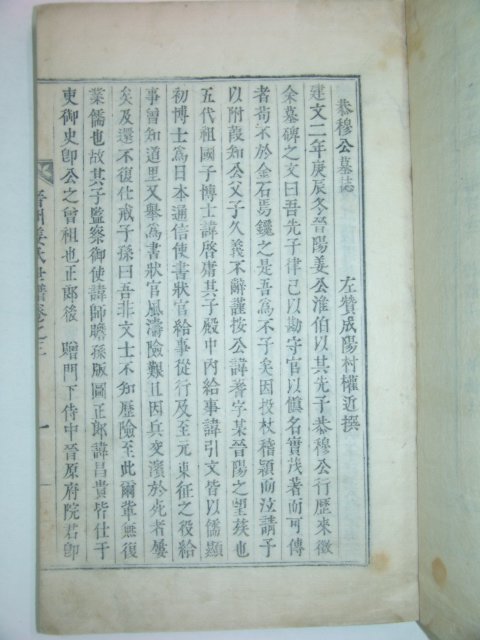 恭穆公墓誌
左贊成陽村權近撰
建文二年庚辰冬晉陽姜公淮伯以其先子恭穆公行歷來徵
余墓碑之文曰吾先子律己以勤守官以愼名實茂著而可傳
者苟不於金石焉鑱之是吾爲不子矣因投杖稽顙而泣請予
以附葭知公父子久義不辭謹按公諱蓍字某晉陽之望族也
五代祖國子博士諱啓庸其子殿中內給事諱引文皆以儒顯
初博士爲日本通信使書狀官給事從行及至元東征之役給
事曾知道里又擧爲書狀官風濤險艱且因兵交濱於死者屢
矣及還不復仕戒子孫曰吾非文士不知歷險至此爾輩無復
業儒也故其子監察御使諱師瞻孫版圖正郞諱昌貴皆仕于
吏御史卽公之曾祖也正郞後 贈門下侍中晉原府院君卽
晉州姜氏世譜卷之二 一